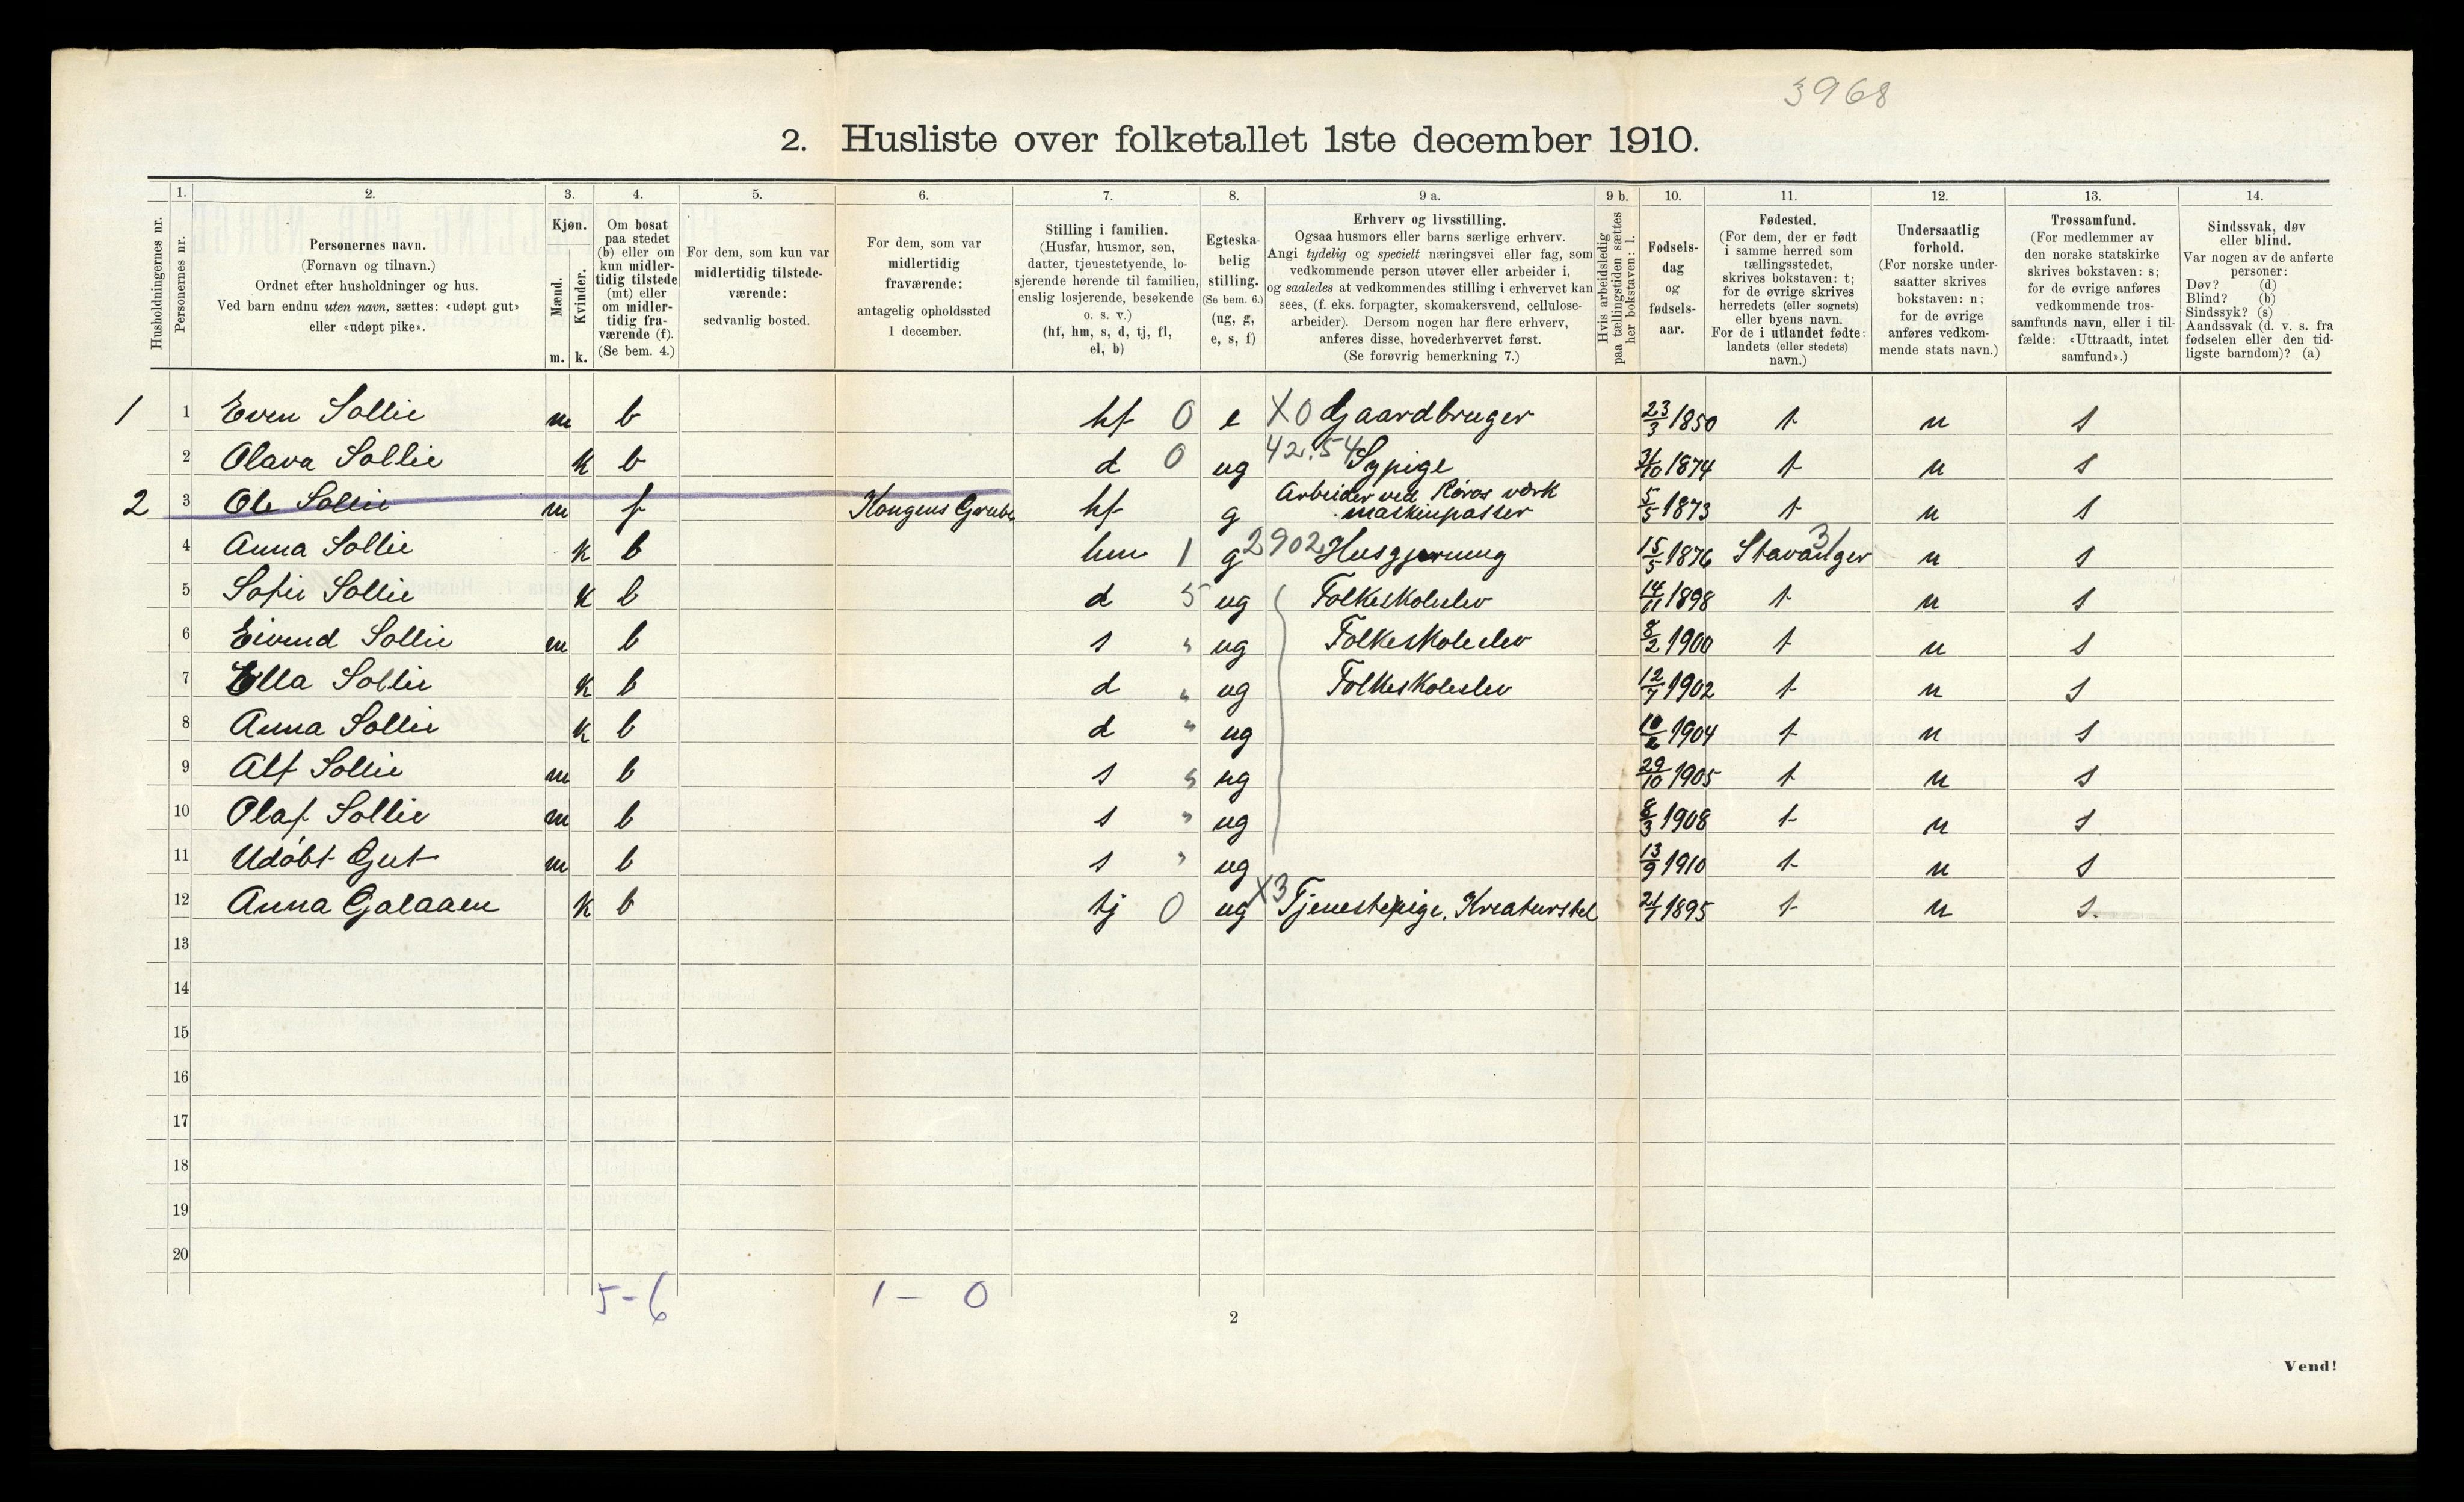 3968
2. Husliste over folketallet 1ste december 1910.
Husholdningernes nr.
1. Personernes nr.
2. Personernes navn. (Fornavn og tilnavn.) Ordnet efter husholdninger og hus. Ved barn endnu uten navn, sættes: «udøpt gut» eller «udøpt pike».
3. Kjøn. Mænd. m. Kvinder. k.
4. Om bosat paa stedet (b) eller om kun midlertidig tilstede (mt) eller om midlertidig fraværende (f). (Se bem. 4.)
5. For dem, som kun var midlertidig tilstedeværende: sedvanlig bosted.
6. For dem, som var midlertidig fraværende: antagelig opholdssted 1 december.
7. Stilling i familien. (Husfar, husmor, søn, datter, tjenestetyende, losjerende hørende til familien, enslig losjerende, besøkende o. s. v.) (hf, hm, s, d, tj, fl, el, b)
8. Egteskabelig stilling. (Se bem. 6.) (ug, g, e, s, f)
9 a. Erhverv og livsstilling. Ogsaa husmors eller barns særlige erhverv. Angi tydelig og specielt næringsvei eller fag, som vedkommende person utøver eller arbeider i, og saaledes at vedkommendes stilling i erhvervet kan sees, (f. eks. forpagter, skomakersvend, cellulosearbeider). Dersom nogen har flere erhverv, anføres disse, hovederhvervet først. (Se forøvrig bemerkning 7.)
9 b. Hvis arbeidsledig paa tællingstiden sættes her bokstaven: l.
10. Fødselsdag og fødselsaar.
11. Fødested. (For dem, der er født i samme herred som tællingsstedet, skrives bokstaven: t; for de øvrige skrives herredets (eller sognets) eller byens navn. For de i utlandet fødte: landets (eller stedets) navn.)
12. Undersaatlig forhold. (For norske undersaatter skrives bokstaven: n; for de øvrige anføres vedkommende stats navn.)
13. Trossamfund. (For medlemmer av den norske statskirke skrives bokstaven: s; for de øvrige anføres vedkommende trossamfunds navn, eller i tilfælde: «Uttraadt, intet samfund».)
14. Sindssvak, døv eller blind. Var nogen av de anførte personer: Døv? (d) Blind? (b) Sindssyk? (s) Aandssvak (d. v. s. fra fødselen eller den tidligste barndom)? (a)
1 1 Even Sollie m b hf 0 e X0 Gaardbruger 23/3 1850 t n s
2 Olava Sollie k b d 0 ug 42.54 Sypige 31/10 1874 t n s
2 3 Ole Sollie m f Kongens Grube hf g Arbeider ved Røros værk maskinpasser 5/5 1873 t n s
4 Anna Sollie k b hm 1 g 2902 Husgjerning 15/5 1876 Stavanger 31 n s
5 Sofie Sollie k b d 5 ug Folkeskoleelev 14/11 1898 t n s
6 Eivind Sollie m b s " ug Folkeskoleelev 8/2 1900 t n s
7 Ella Sollie k b d " ug Folkeskoleelev 12/7 1902 t n s
8 Anna Sollie k b d " ug 1904 t n s
9 Alf Sollie m b s " ug 29/10 1905 t n s
10 Olaf Sollie m b s " ug 8/3 1908 t n s
11 Udøbt Gut m b s " ug 13/9 1910 t n s
12 Anna Galaaen k b tj 0 ug X3 Tjenestepige, Kreaturstel 21/1 1895 t n s.
13
14
15
16
17
18
19
20
5-6 1 - 0
2
Vend!